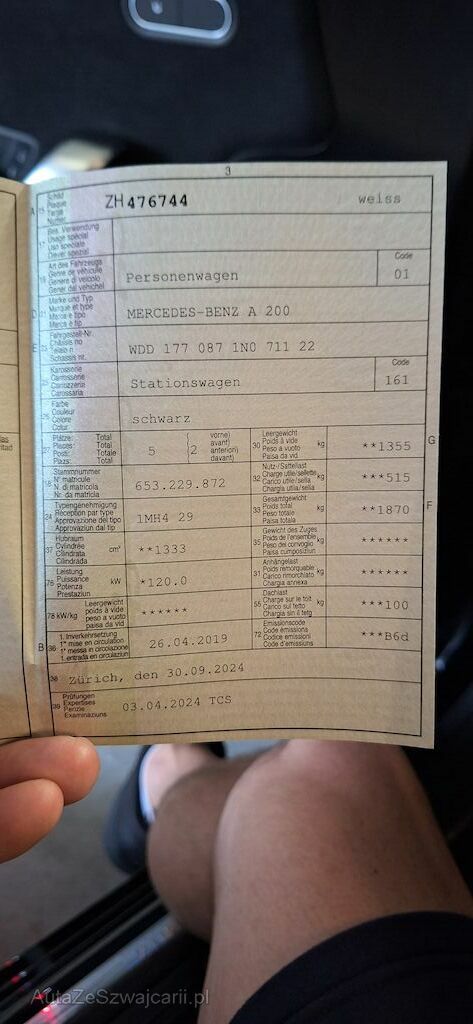 3
A 15 Schild Plaque Targa Numer ZH 476744 weiss
17 Bes. Verwendung Usage spécial Uso speciale Diever spezial
19 Art des Fahrzeugs Genre de véhicule Genere di veicolo Gener dal vehichel Personenwagen Code 01
D 21 Marke und Typ Marque et type Marca e tipo Marca e tip MERCEDES-BENZ A 200
E 23 Fahrgestell-Nr. Châssis no Telaio n. Schassis nr. WDD 177 087 1N0 711 22
25 Karosserie Carrosserie Carrozzeria Carossaria Stationswagen Code 161
26 Farbe Couleur Colore Colur schwarz
27 Plätze: Total Places: Total Posti: Totale Plazs: Total 5 2 vorne) avant) anteriori) davant) 30 Leergewicht Poids à vide Peso a vuoto Paisa da vid kg **1355 G
18 Stammnummer N° matricule N. di matricola Nr. da matricla 653.229.872 32 Nutz-/Sattellast Charge utile/sellette Carico utile/sella Chargia utila/sella kg ***515
24 Typengenehmigung Réception par type Approvazione del tipo Approvaziun dal tip 1MH4 29 33 Gesamtgewicht Poids total Peso totale Paisa totala kg **1870 F
37 Hubraum Cylindrée Cilindrata Cilindrada cm³ **1333 35 Gewicht des Zuges Poids de l'ensemble Peso del convoglio Paisa cumposiziun kg ******
76 Leistung Puissance Potenza Prestaziun kW *120.0 31 Anhängelast Poids remorquable Carico rimorchiato Chargia annexa kg ******
78 kW/kg Leergewicht poids à vide peso a vuoto paisa da vid ****** 55 Dachlast Charge sur le toit Carico sul tetto Chargia sin il tetg kg ***100
B 36 1. Inverkehrsetzung 1re mise en circulation 1a messa in circolazione 1. entrada en circulaziun 26.04.2019 72 Emissionscode Code émissions Codice emissioni Code d'emissiuns ***B6d
38 Zürich, den 30.09.2024
39 Prüfungen Expertises Perizie Examinaziuns 03.04.2024 TCS
AutaZeSzwajcarii.pl